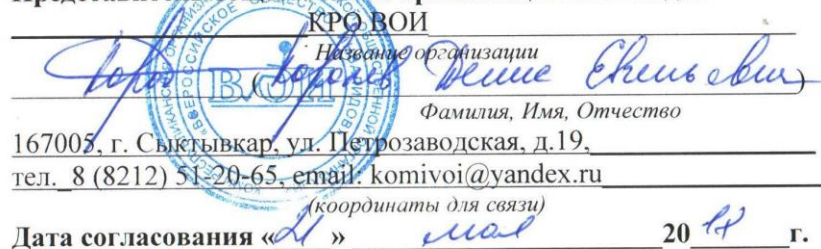 КРО ВОИ
Название организации
(Королев Денис Евгеньевич)
Фамилия, Имя, Отчество
167005, г. Сыктывкар, ул. Петрозаводская, д.19,
тел. 8 (8212) 51-20-65, email: komivoi@yandex.ru
(координаты для связи)
Дата согласования «21» мая 2018 г.
ВОИ